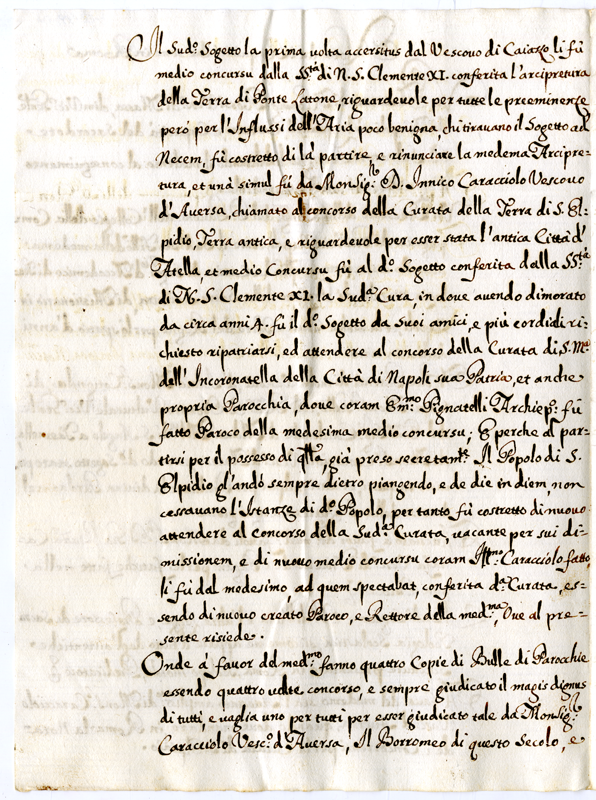 Il Sud.º Sogetto la prima volta accersitus dal Vescovo di Caiazzo li fú
medio concursu dalla SS.tà di N. S. Clemente XI. conferita l'arcipretura
della Terra di Ponte Latone riguardevole per tutte le preeminenze
peró per l'Influssi dell'Aria poco benigna, chi tiravano il Sogetto ad
Necem, fú costretto di lá partire, e rinunciare la modema Arcipre-
tura, et unà simul fú da Monsig.r D. Innico Caracciolo Vescovo
d'Aversa, chiamato al concorso della Curata della Terra di S. El-
pidio, Terra antica, e riguardevole per esser stata l'antica Cittá d'
Atella, et medio Concursu fú al d.º Sogetto conferita dalla SS.tà
di N. S. Clemente XI. la Sud.a Cura, in dove avendo dimorato
da circa anni 4. fú il d.º Sogetto da suoi amici, e piú cordiali ri-
chiesto ripatriarsi, ed attendere al concorso della Curata di S. M.a
dell'Incoronatella della Cittá di Napoli sua Patria, et anche
propria Parocchia, dove coram Em.mo Pignatelli Archiep.: fú
fatto Paroco della medesima medio concursu; E perche al par-
tirsi per il possesso di q.lla, giá preso secretam.te Il Popolo di S.
Elpidio gl'andó sempre dietro piangendo, e de die in diem, non
cessavano l'Istanze di d.º Popolo, per tanto fú costretto di nuovo
attendere al concorso della Sud.a Curata, vacante per sui di-
missionem, e di nuovo medio concursu coram Ill.mo Caracciolo fatto,
li fú dal modesimo, ad quem spectabat, conferita d.a Curata, es-
sendo di nuovo creato Paroco, e Rettore della med.ma, Ove al pre-
sente risiede.
Onde á favor del med.mo fanno quattro Copie di Bulle di Parocchie
essendo quattro volte concorso, e sempre giudicato il magis dignus
di tutti, e vaglia uno per tutti per esser giudicato tale da Monsig.r
Caracciolo Vesc.º d'Aversa, Il Borromeo di questo Secolo, e